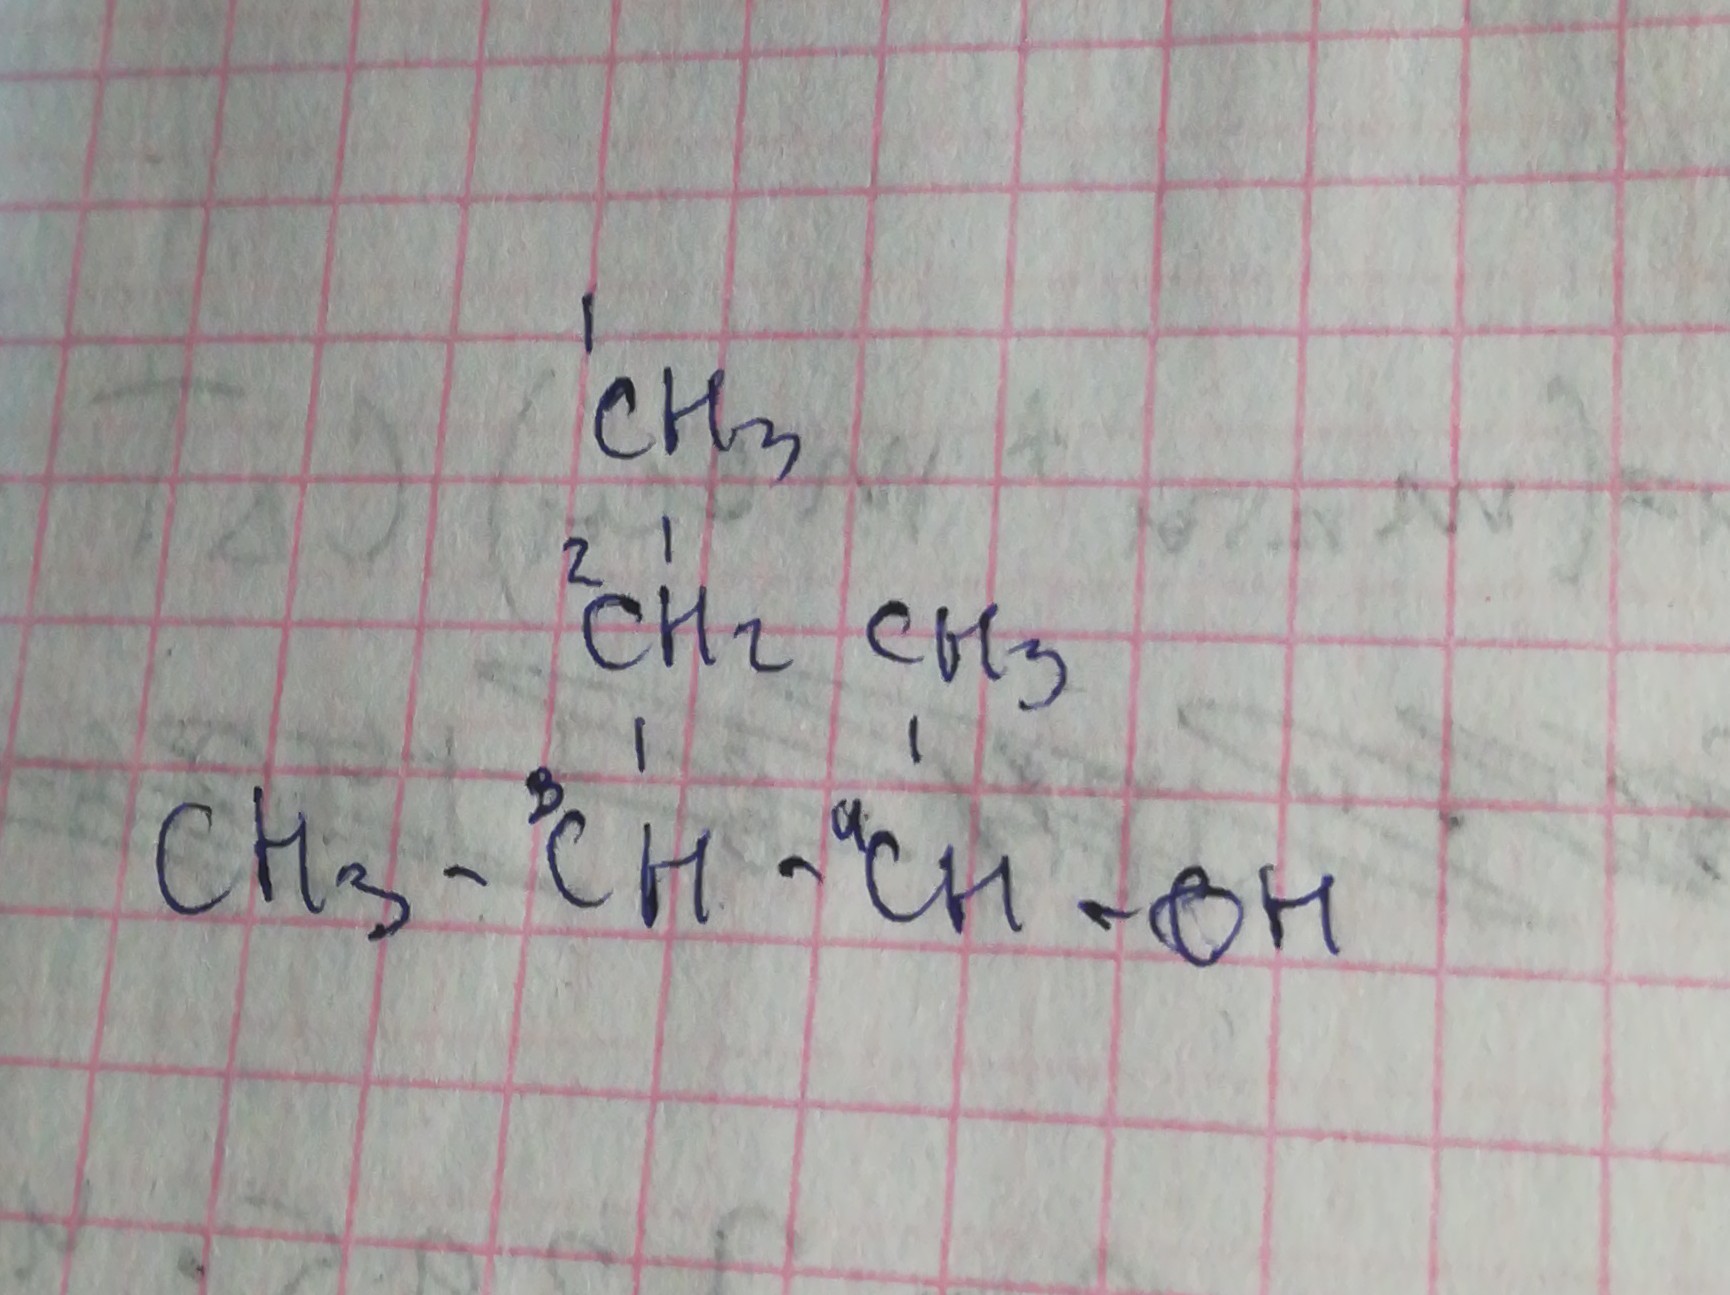 1
CH3
2 CH2 CH3
CH3 - 3CH - 4CH - OH